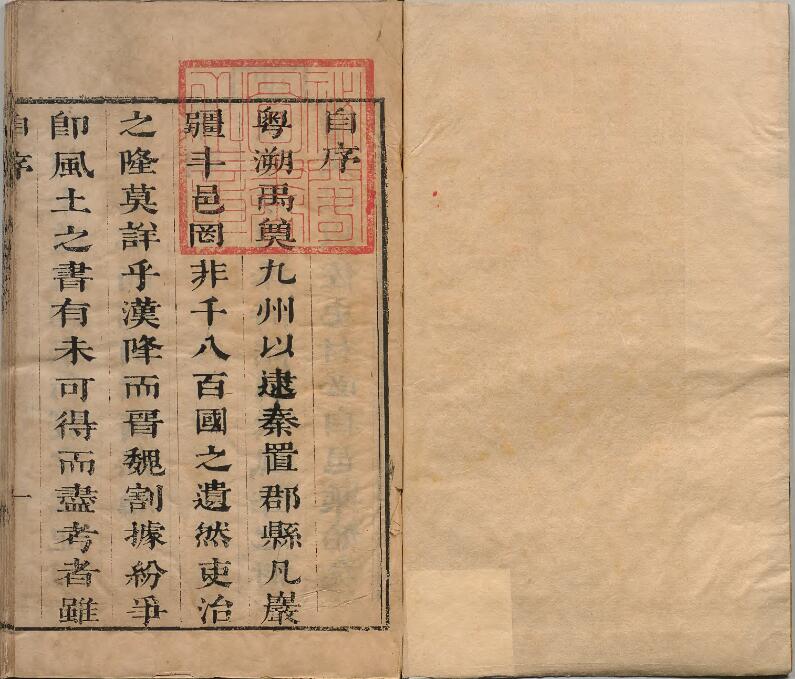 自序
粤溯禹奠九州以逮秦置郡縣凡巖
疆斗邑罔非千八百國之遺然吏治
之隆莫詳乎漢降而晋魏割據紛爭
即風土之書有未可得而盡考者雖
自序
一